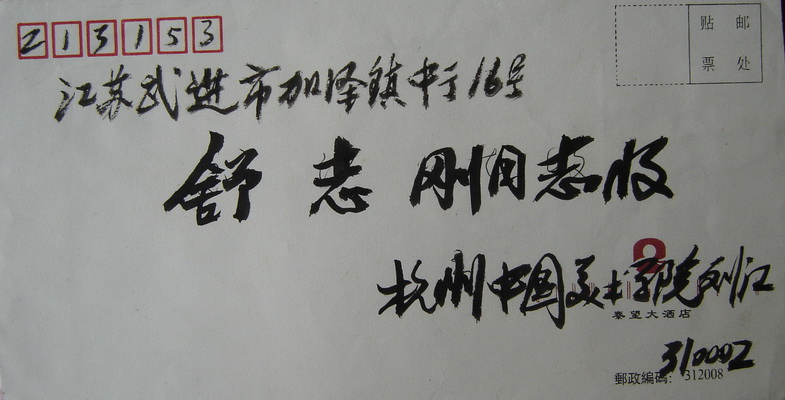 213153
贴 邮
票 处
江苏武进市加泽镇中干16号
舒志刚同志收
杭州中国美术学院刘江
秦望大酒店
310002
郵政編碼：312008